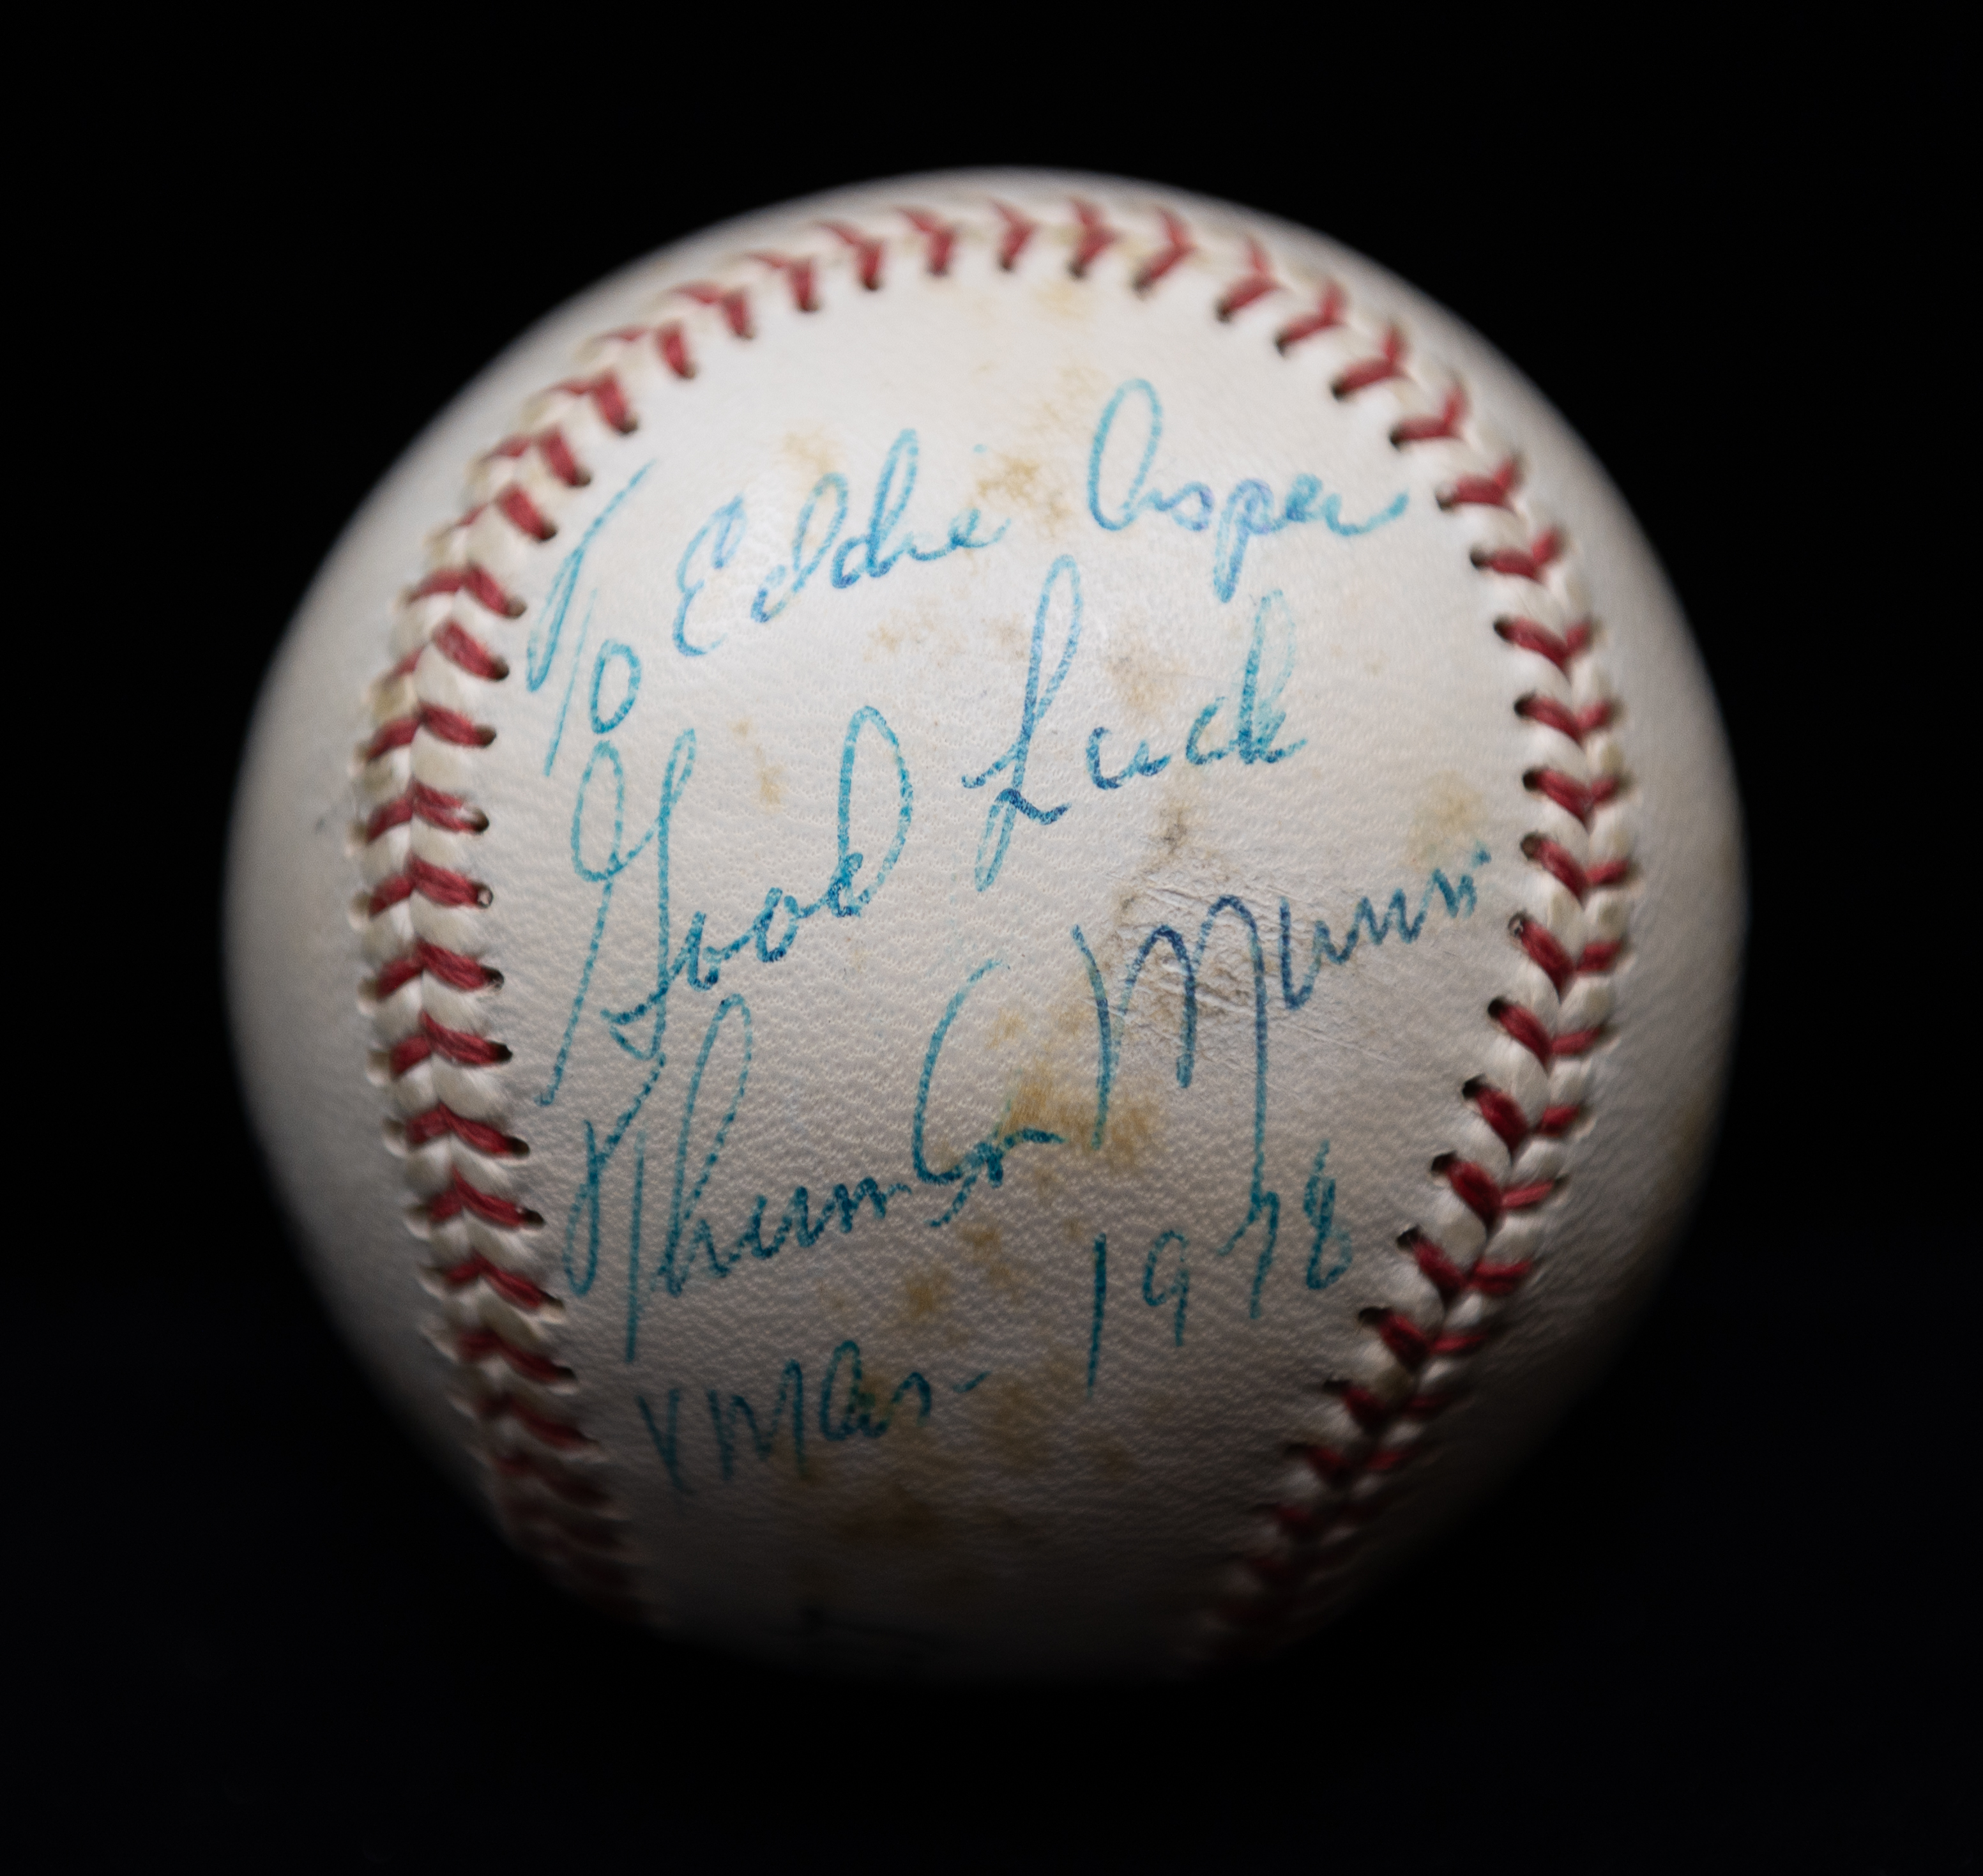 To Eddie Casper
Good Luck
Thurman Munson
Xmas 1978